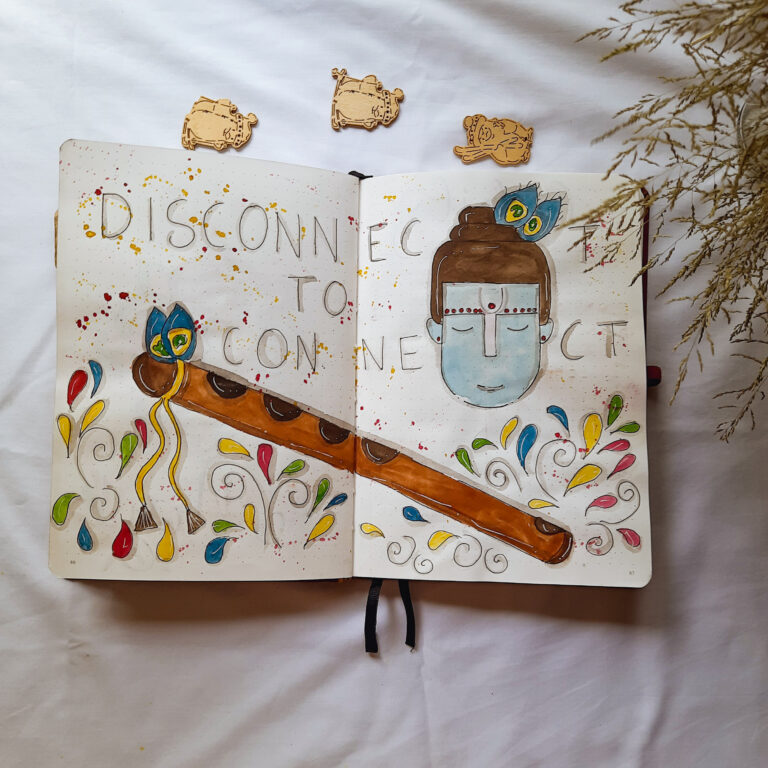 DISCONNECT
TO
CONNECT